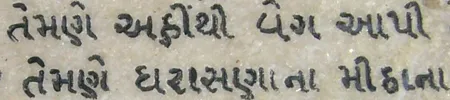 તેમણે અહીંથી વેગ આપી
તેમણે ધરાસણાના મીઠાના